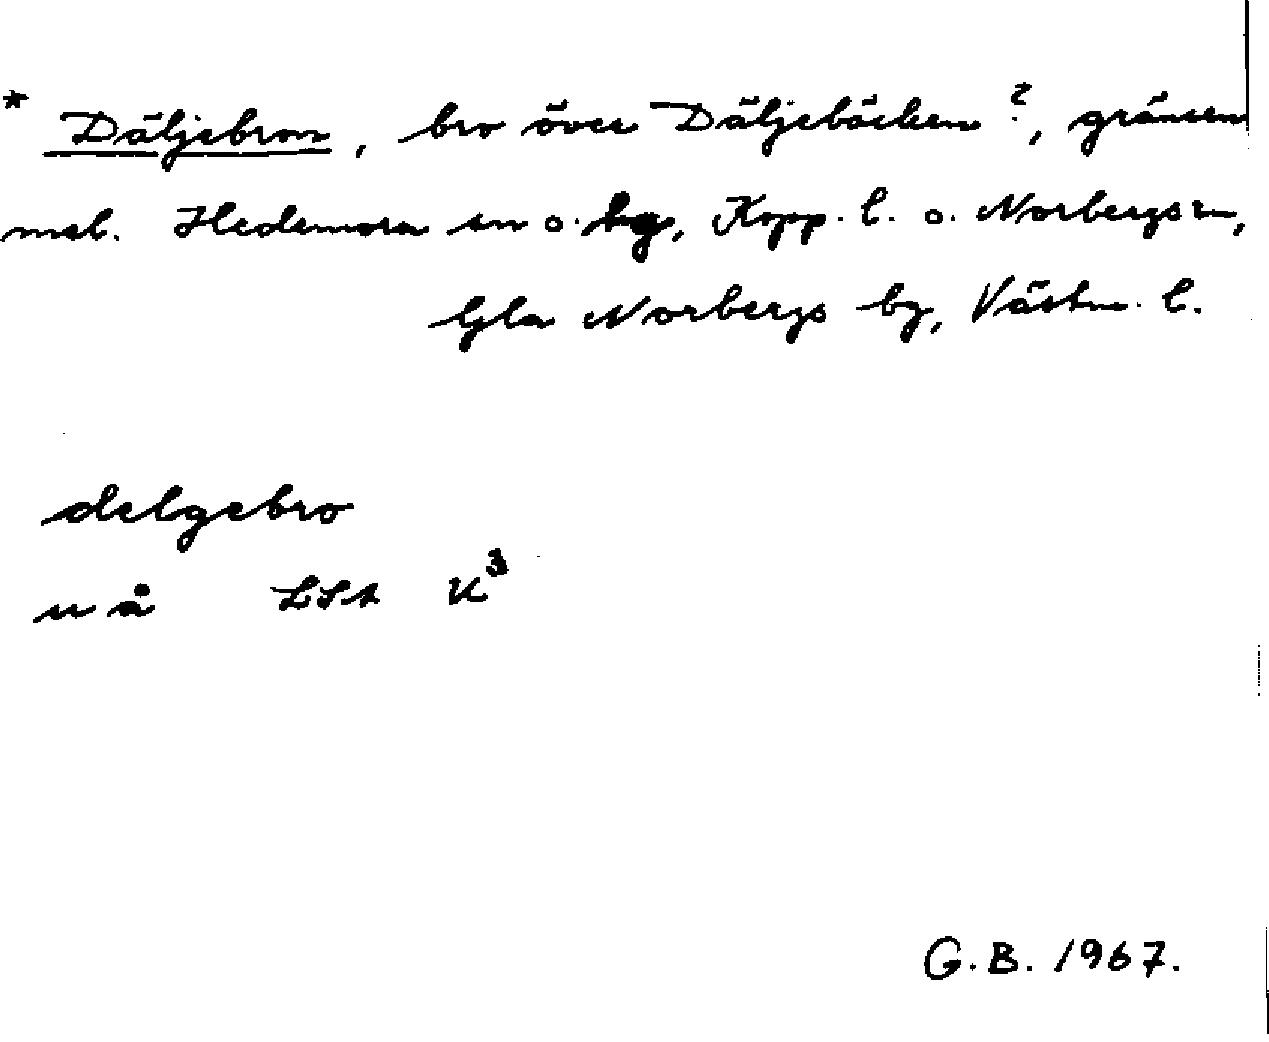 * Däljebron, bro över Däljebäcken?, gränsen
mel. Hedemora sn o. hg, Kopp. l. o. Norbergs sn,
Gla Norbergs bg, Västm. l.
delgebro
u å LSA K³
G.B. 1967.